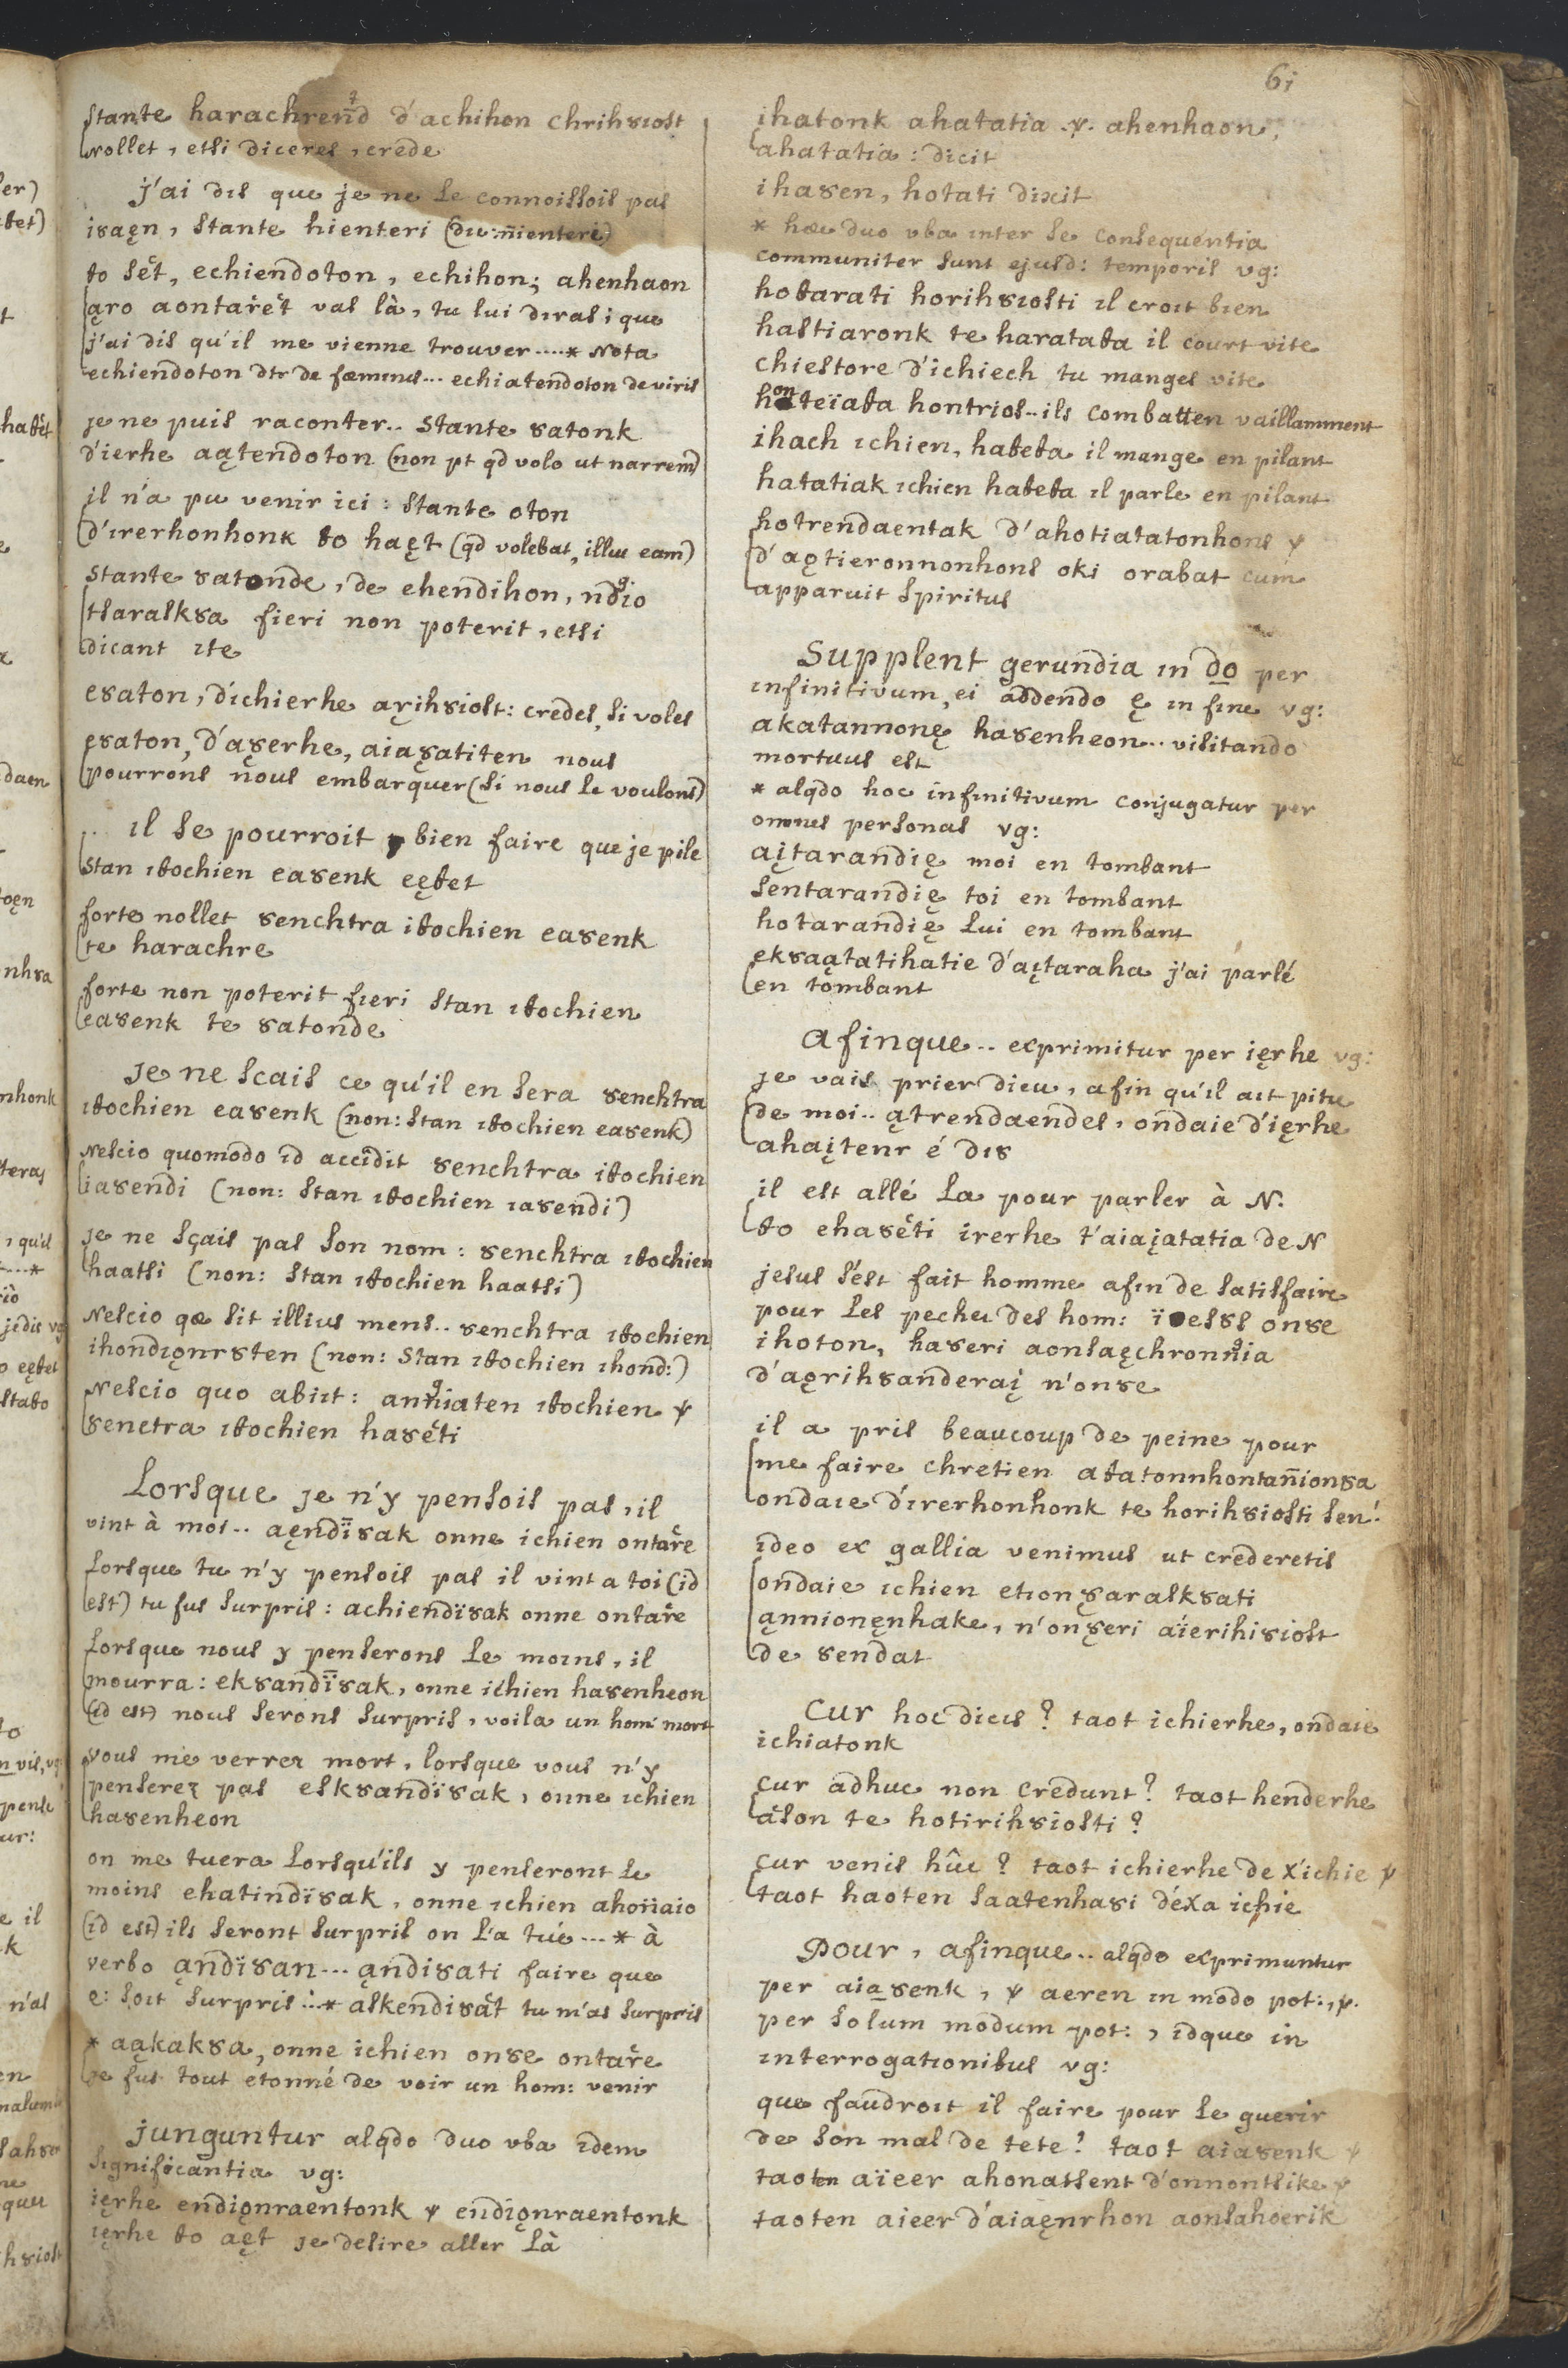 61
stante harachrend d'achihon chrihȣiost
nollet, etsi diceres, crede
j'ai dis que je ne le connoissois pas
iȣaęn, stante hienteri (du: ñienteri)
to sĕt, echiendoton, echihon; ahenhaon
ąro aontarĕt vas là, tu lui diras; que
j'ai dis qu'il me vienne trouver....* Nota
echiendoton dtr de fœminis... echiatendoton de viris
je ne puis raconter.. stante ȣatonk
d'ierhe aątendoton (non pt qd volo ut narrem)
il n'a pu venir ici: stante oton
d'irerhonhonk to haęt (qd volebat, illuc eam)
stante ȣatonde, de ehendihon, ndio
tsaraskȣa fieri non poterit, etsi
dicant ite
eȣaton, d'ichierhe aŗihȣiost: credes, si voles
eȣaton, d'aȣerhe, aiaȣatiten nous
pourrons nous embarquer (si nous le voulons)
.. il se pourroit bien faire que je pile
stan itochien eaȣenk eętet
forte nollet ȣenchtra itochien eaȣenk
te harachre
forte non poterit fieri stan itochien
eaȣenk te ȣatonde
Je ne scais ce qu'il en sera ȣenchtra
itochien eaȣenk (non: stan itochien eaȣenk)
Nescio quomodo id accidit ȣenchtra itochien
iaȣendi (non: stan itochien iaȣendi)
je ne sçais pas son nom: ȣenchtra itochien
haatsi (non: stan itochien haatsi)
Nescio qæ sit illius mens.. ȣenchtra itochien
ihondiǫnrȣten (non: stan itochien ihond:)
Nescio quo abiit: anniaten itochien ȣ
ȣenctra itochien haȣĕti
Lorsque je n'y pensois pas, il
vint à moi.. aęndïȣak onne ichien ontarĕ
Lorsque tu n'y pensois pas il vint a toi (id
est) tu fus surpris: achiendïȣak onne ontarĕ
Lorsque nous y penserons le moins, il
mourra: ekȣandïȣak, onne ichien haȣenheon
(id est) nous serons surpris, voila un hom: mort
vous me verrez mort, lorsque vous n'y
penserez pas eskȣandïȣak, onne ichien
haȣenheon
on me tuera Lorsqu'ils y penseront le
moins ehatindïȣak, onne ichien ahoñaio
(id est) ils seront surpris on l'a tué...* à
verbo ąndïȣan... ąndiȣati faire que
e: soit surpris...* askendiȣăt tu m'as surpris
* aąkakȣa, onne ichien onȣe ontarĕ
je fus tout etonné de voir un hom: venir
junguntur alqdo duo vba idem
significantia vg:
ięrhe endiǫnraentonk ȣ endiǫnraentonk
ięrhe to aęt je desire aller là
ihatonk ahatatia .ȣ. ahenhaon,
ahatatia: dicit
ihaȣen, hotati dixit
* hæc duo vba inter se consequentia
communiter sunt ejusd: temporis vg:
hotarati horihȣiosti il croit bien
hastiaronk te haratata il court vite
chiestore d'ichiech tu manges vite
honteïata hontrios.. ils combatten vaillamment
ihach ichien, hateta il mange en pilant
hatatiak ichien hateta il parle en pilant
hotrendaentak d'ahotiatatonhons ȣ
d'aǫtieronnonhons oki orabat cum
apparuit spiritus
Supplent gerundia in do per
infinitivum, ei addendo ę in fine vg:
akatannonę haȣenheon.. visitando
mortuus est
* alqdo hoc infinitivum conjugatur per
omnes personas vg:
aįtarandię moi en tombant
sentarandię toi en tombant
hotarandię lui en tombant
ekȣaątatihatie d'aįtaraha j'ai parlé
en tombant
Afinque.. exprimitur per ięrhe vg:
je vais prier dieu, afin qu'il ait pitie
de moi.. ątrendaendes, ondaie d'ięrhe
ahaįtenr é diȣ
il est allé la pour parler à N.
to ehaȣĕti irerhe t'aiaįatatia de N
jesus s'est fait homme afin de satisfaire
pour les pechez des hom: ïesȣs onȣe
ihoton, haȣeri aonsaęchronnia
d'aęrihȣanderaį n'onȣe
il a pris beaucoup de peine pour
me faire chretien atatonnhontañionȣa
ondaie d'irerhonhonk te horihȣiosti sen:
ideo ex gallia venimus ut crederetis
ondaie ichien etionȣaraskȣati
ąnnionęnhake, n'onȣeri aïerihiȣiost
de ȣendat
Cur hoc dicis? taot ichierhe, ondaie
ichiatonk
cur adhuc non credunt? taot henderhe
ăson te hotirihȣiosti?
cur venis hûc? taot ichierhe de x'ichie ȣ
taot haoten saatenhaȣi d'éxa ichie
Pour, afinque.. alqdo exprimuntur
per aiaȣenk, ȣ aeren in modo pot:, ȣ.
per solum modum pot:, idque in
interrogationibus vg:
que faudroit il faire pour le guerir
de son mal de tete? taot aiaȣenk ȣ
taoten aïeer ahonatsent d'onnontsike ȣ
taoten aieer d'aiaęnrhon aonsahoerik